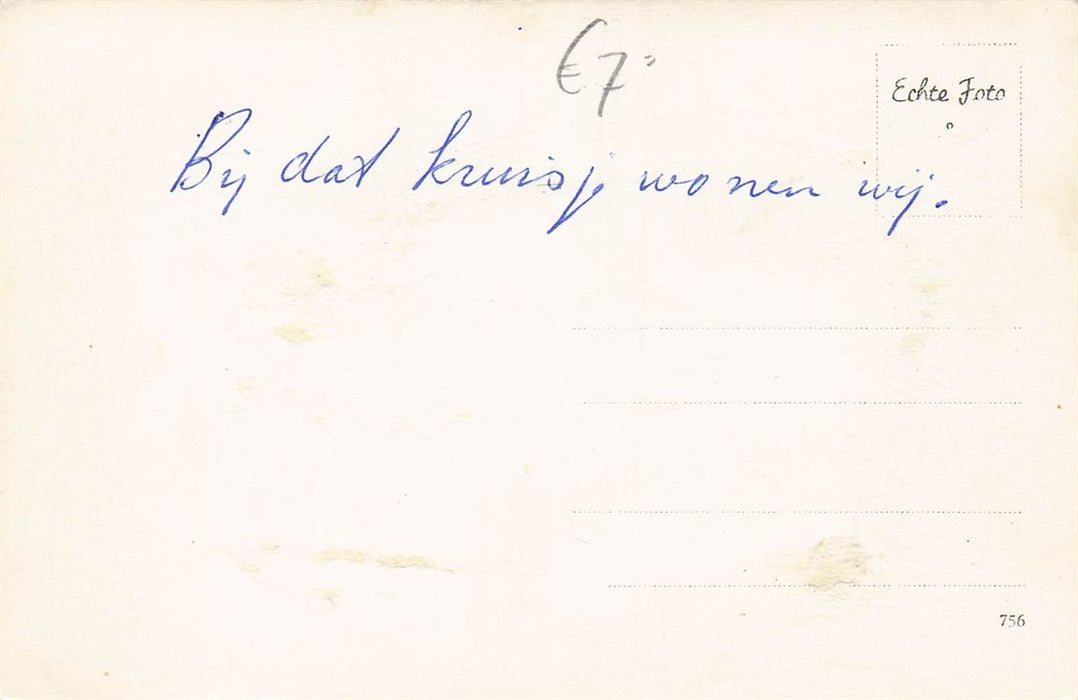 €7,=
Echte Foto
Bij dat kruisje wonen wij.
756